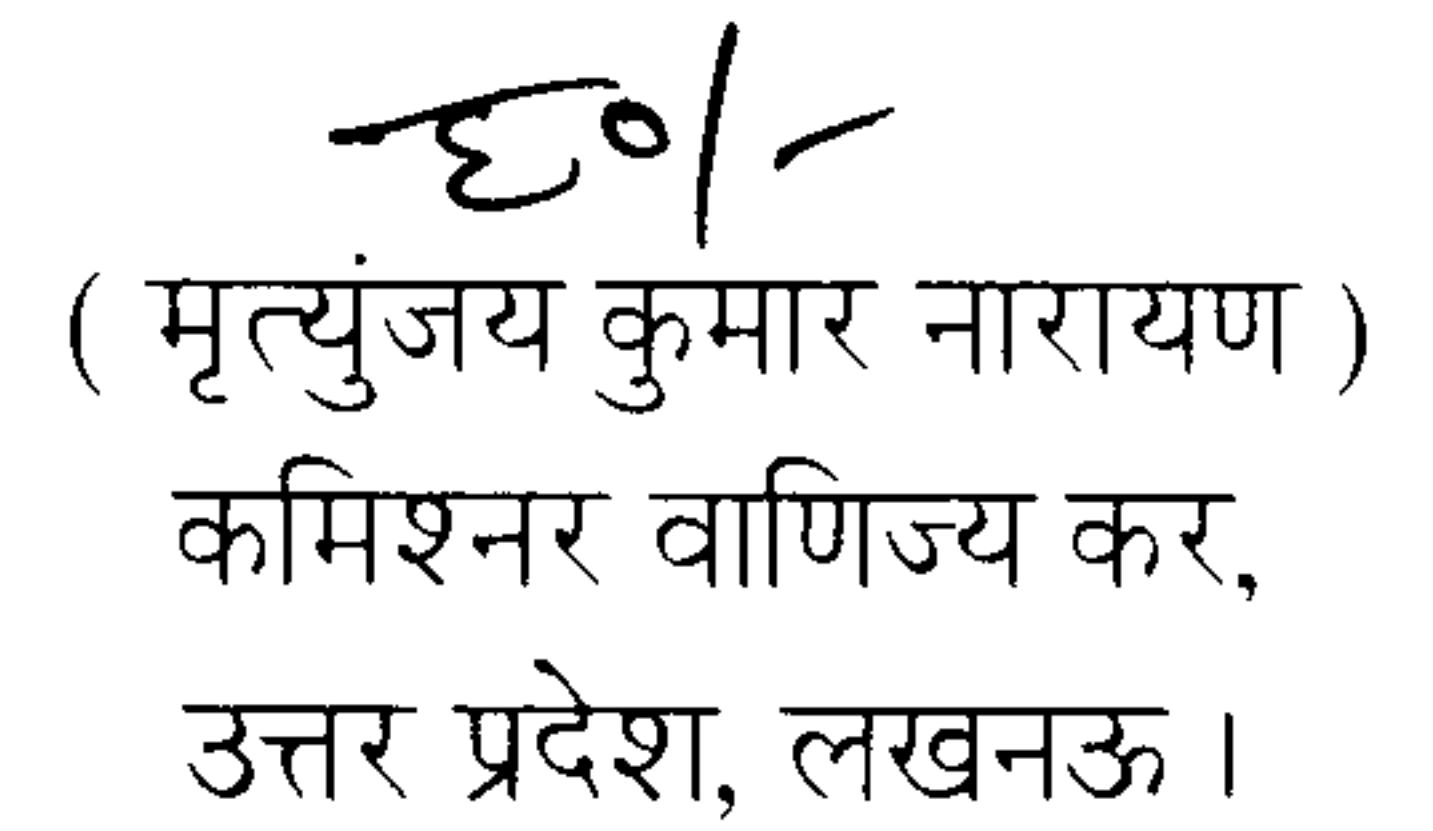 ह०/-
( मृत्युंजय कुमार नारायण )
कमिश्नर वाणिज्य कर,
उत्तर प्रदेश, लखनऊ ।